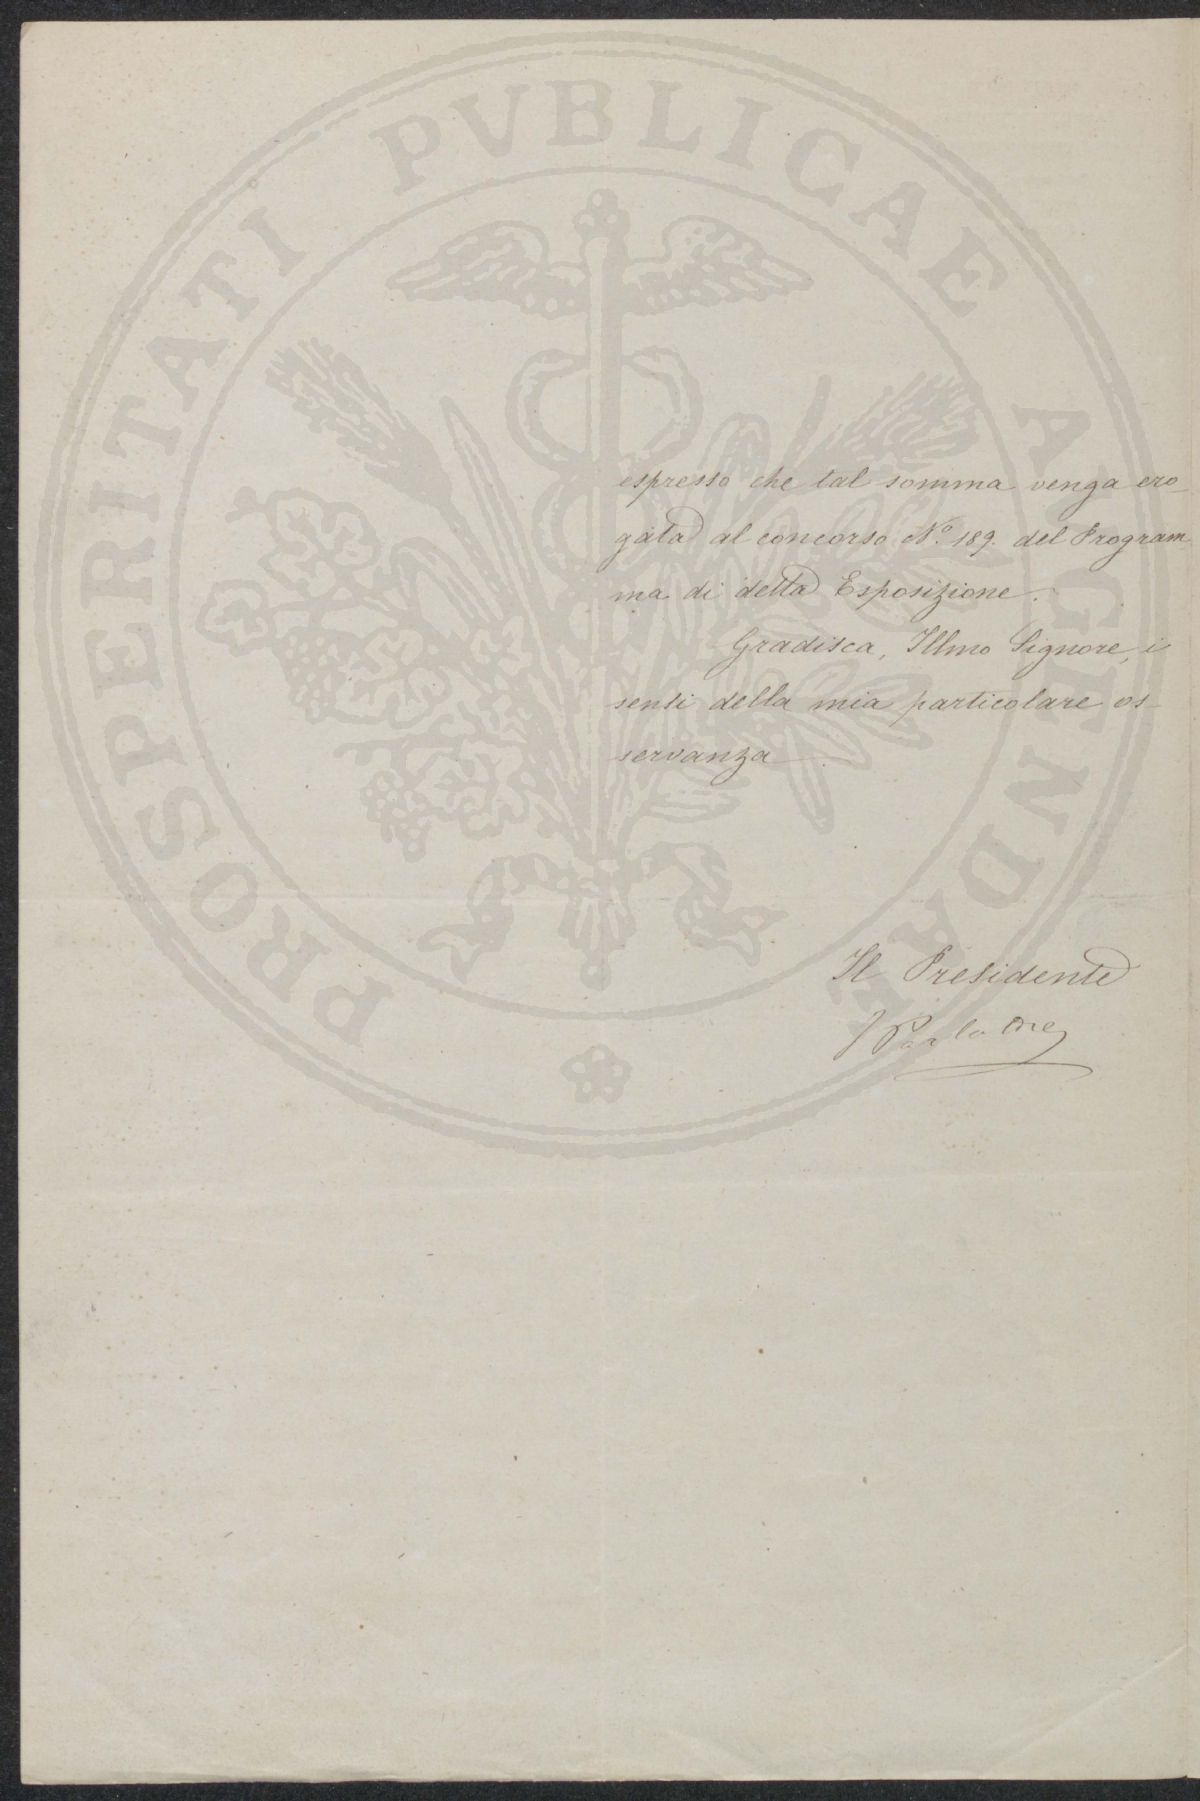 PROSPERITATI PVBLICAE AVGENDAE
espresso che tal somma venga ero-
gata al concorso N.° 189. del Program-
ma di detta Esposizione.
Gradisca, Illmo Signore, i
sensi della mia particolare os-
servanza
Il Presidente